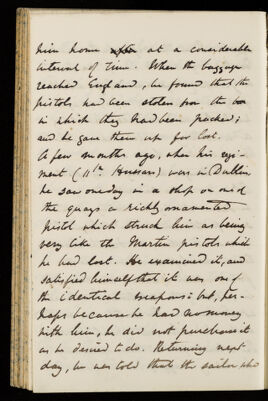 him home at a considerable
interval of time. When the baggage
reached England, he found that the
pistols had been stolen from the box
in which they had been packed;
and he gave them up for lost.
A few months ago, when his regi-
ment (11th Hussars) was in Dublin
he saw one day in a shop on one of
the quays a richly ornamented
pistol which struck him as being
very like the Martin pistols which
he had lost. He examined it, and
satisfied himself that it was one of
the identical weapons: but, per-
haps because he had no money
with him, he did not purchase it
as he desired to do. Returning next
day, he was told that the sailor who